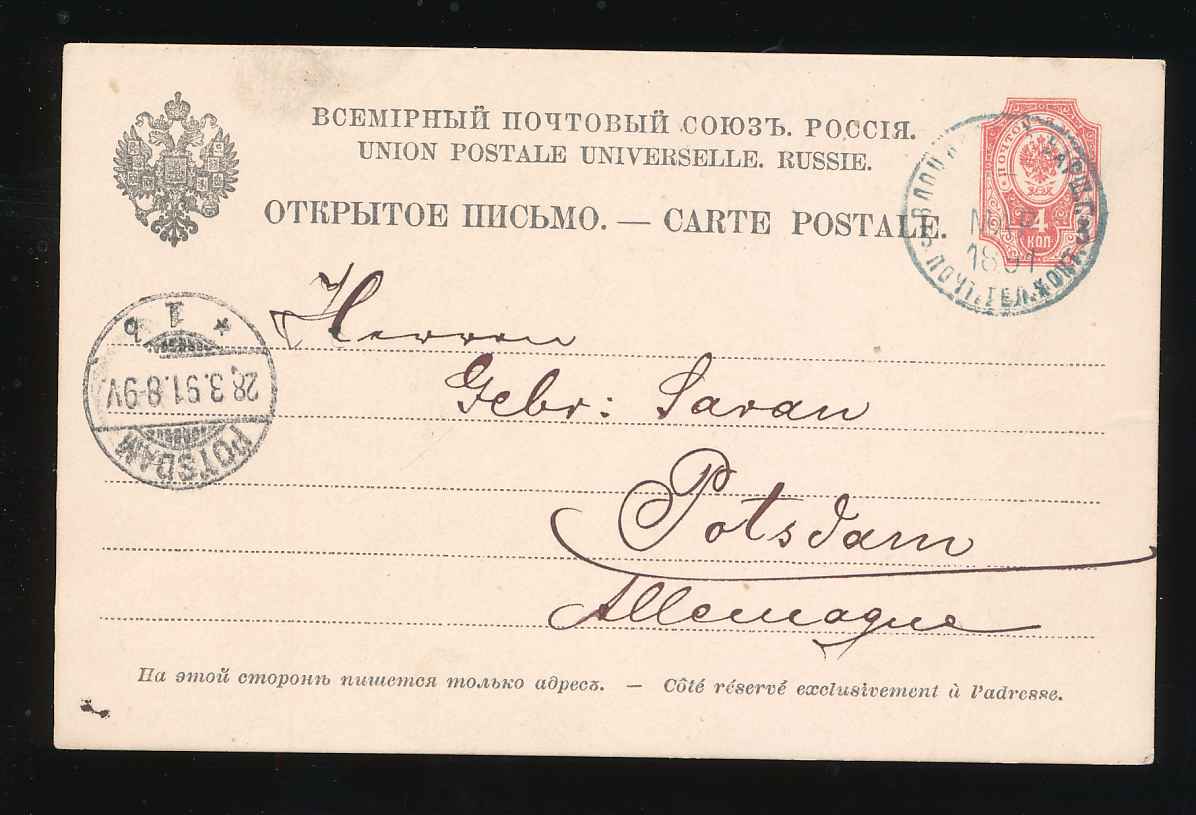 ВСЕМІРНЫЙ ПОЧТОВЫЙ СОЮЗЪ. РОССІЯ.
UNION POSTALE UNIVERSELLE. RUSSIE.
ОТКРЫТОЕ ПИСЬМО. — CARTE POSTALE.
ПОЧТО
4
КОП
1891
ПОЧТ. ТЕЛ. КОНТ.
Herren
Gebr: Saran
Potsdam
Allemagne
POTSDAM
28.3.91.8-9V.
* 1 b
На этой сторонѣ пишется только адресъ. — Côté réservé exclusivement à l'adresse.